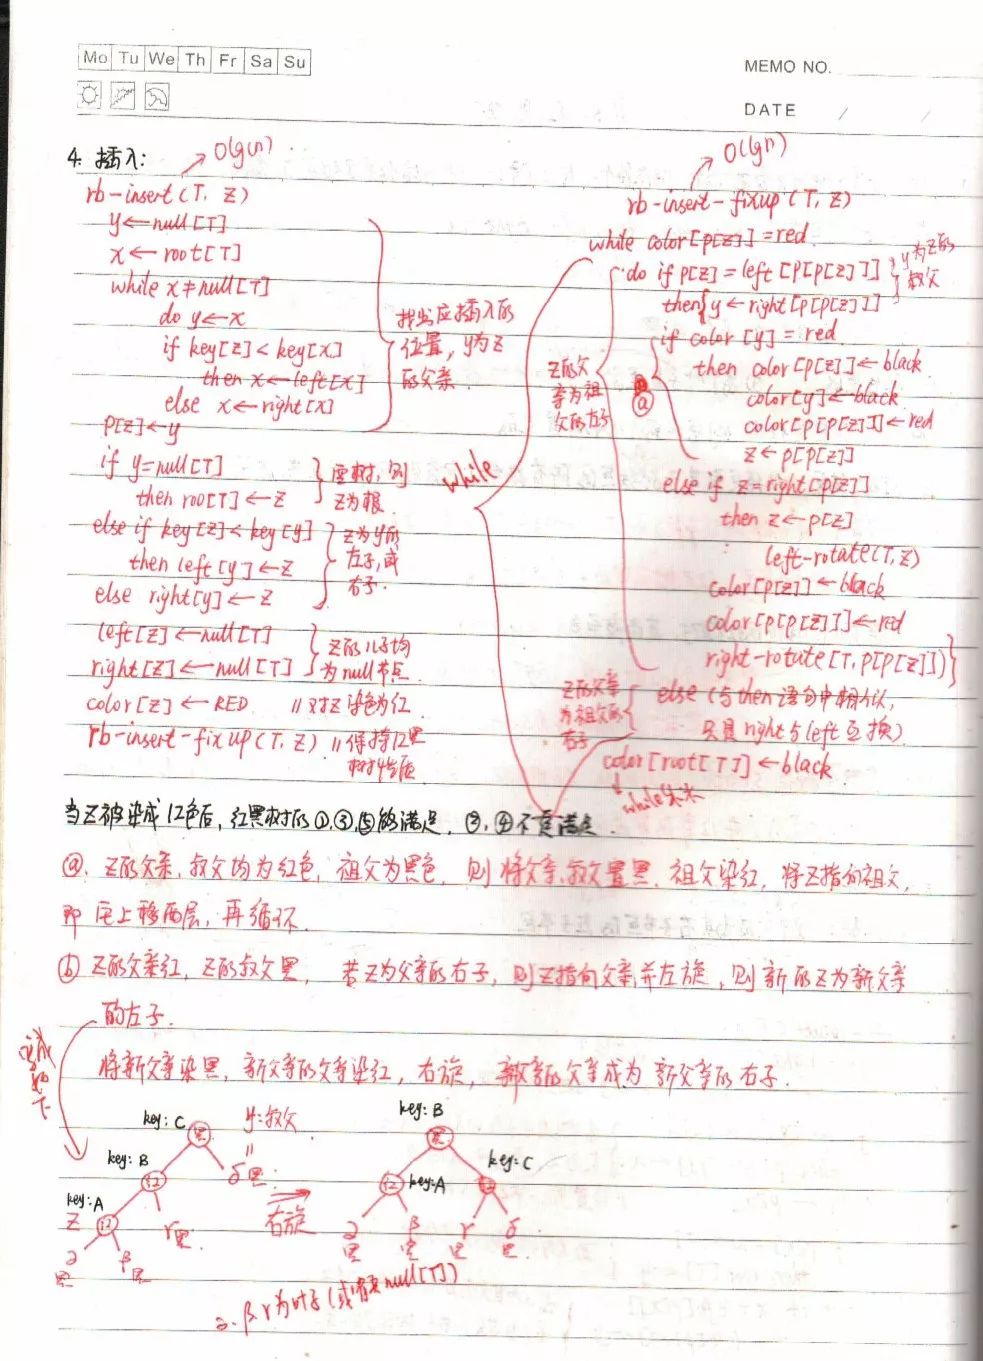 Mo Tu We Th Fr Sa Su
MEMO NO.
DATE / /
4. 插入:
O(lgn)
rb-insert(T, z)
y←null[T]
x←root[T]
while x≠null[T]
do y←x
if key[z]<key[x]
then x←left[x]
else x←right[x]
p[z]←y
找出应插入的
位置,y为z
的父亲.
if y=null[T]
then root[T]←z
空树,则
z为根.
else if key[z]<key[y]
then left[y]←z
else right[y]←z
z为y的
左子,或
右子.
left[z]←null[T]
right[z]←null[T]
z的儿子均
为null节点
color[z]←RED //对z染色为红
rb-insert-fixup(T, z) //保持红黑
树性质
O(lgn)
rb-insert-fixup(T, z)
while color[p[z]]=red
do if p[z]=left[p[p[z]]]
then{y←right[p[p[z]]]
y为z的
叔父
if color[y]=red
then color[p[z]]←black
color[y]←black
color[p[p[z]]]←red
z←p[p[z]]
ⓐ
z的父
亲为祖
父的左子
while
else if z=right[p[z]]
then z←p[z]
left-rotate(T,z)
color[p[z]]←black
color[p[p[z]]]←red
right-rotate[T,p[p[z]])}
z的父亲
为祖父的
右子
else (与then语句中相似,
只是right与left互换)
color[root[T]]←black
while结束
当z被染成红色后,红黑树的①,③,⑤能满足,②,④不一定满足.
ⓐ. z的父亲,叔父均为红色,祖父为黑色,则将父亲,叔父置黑,祖父染红,将z指向祖父,
即z上移两层,再循环.
ⓑ z的父亲红,z的叔父黑,若z为父亲的右子,则z指向父亲并左旋,则新的z为新父亲
的左子.
将新父亲染黑,新父亲的父亲染红,右旋,新父亲的父亲成为新父亲的右子.
key: C
黑
y:叔父
key: B
红
δ 黑
key: A
z
红
γ黑
α
黑
β
黑
右旋
key: B
黑
key: C
红
key: A
红
α
黑
β
黑
γ
黑
δ
黑
α.β.γ为叶子(或者是null[T])